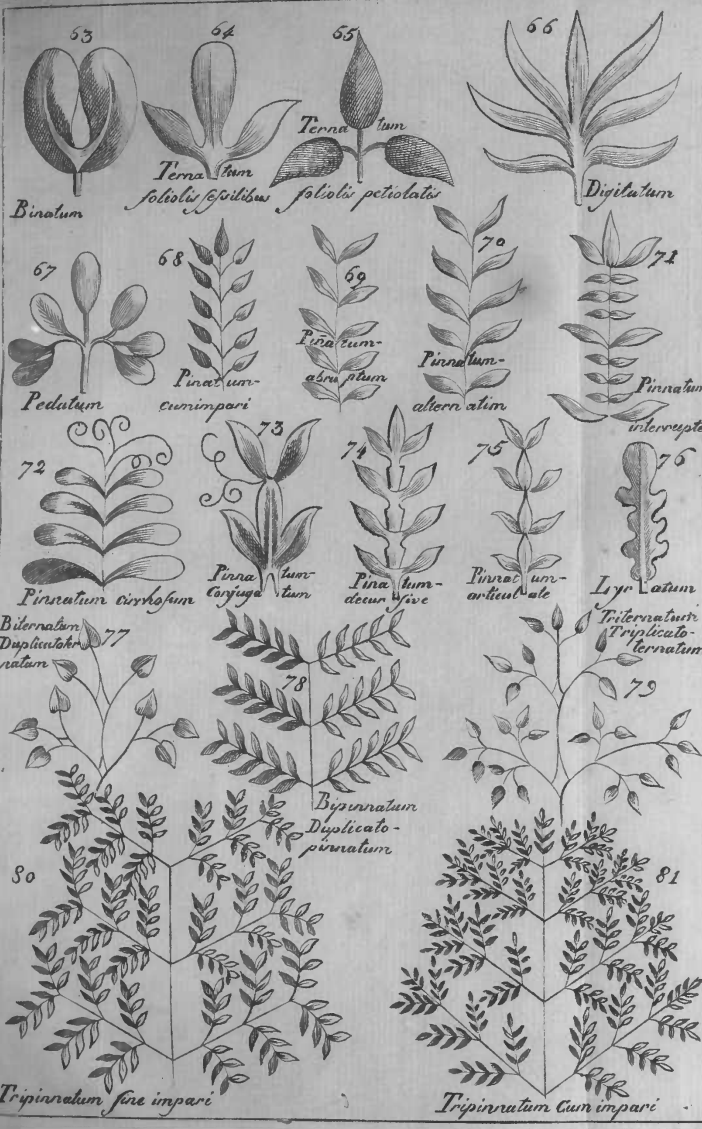 63
64
65
66
Binatum
Ternatum
foliolis sessilibus
Ternatum
foliolis petiolatis
Digitatum
67
68
69
70
71
Pedatum
Pinatum-
cumimpari
Pinatum-
abruptum
Pinnatum-
alternatim
Pinnatum
interrupte
72
73
74
75
76
Pinnatum cirrhosum
Pinnatum-
Conjugatum
Pinatum-
decursive
Pinnatum-
articulate
Lyratum
Biternatum
Duplicatoter
natum
77
78
Bipinnatum
Duplicato-
pinnatum
Triternatum
Triplicato-
ternatum
79
80
Tripinnatum sine impari
81
Tripinnatum Cum impari